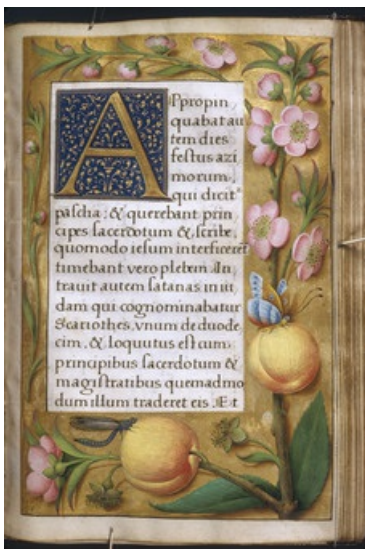 APpropin
quabat au
tem dies
festus azi
morum,
qui dicit^r
pascha: & querebant prin
cipes sacerdotum & scribe,
quomodo iesum interficerẽt
timebant vero plebem. In
travit autem satanas in iu
dam qui cognominabatur
Scariothes, vnum de duode
cim. & loquutus est cum
principibus sacerdotum &
magistratibus quemadmo
dum illum traderet eis. Et